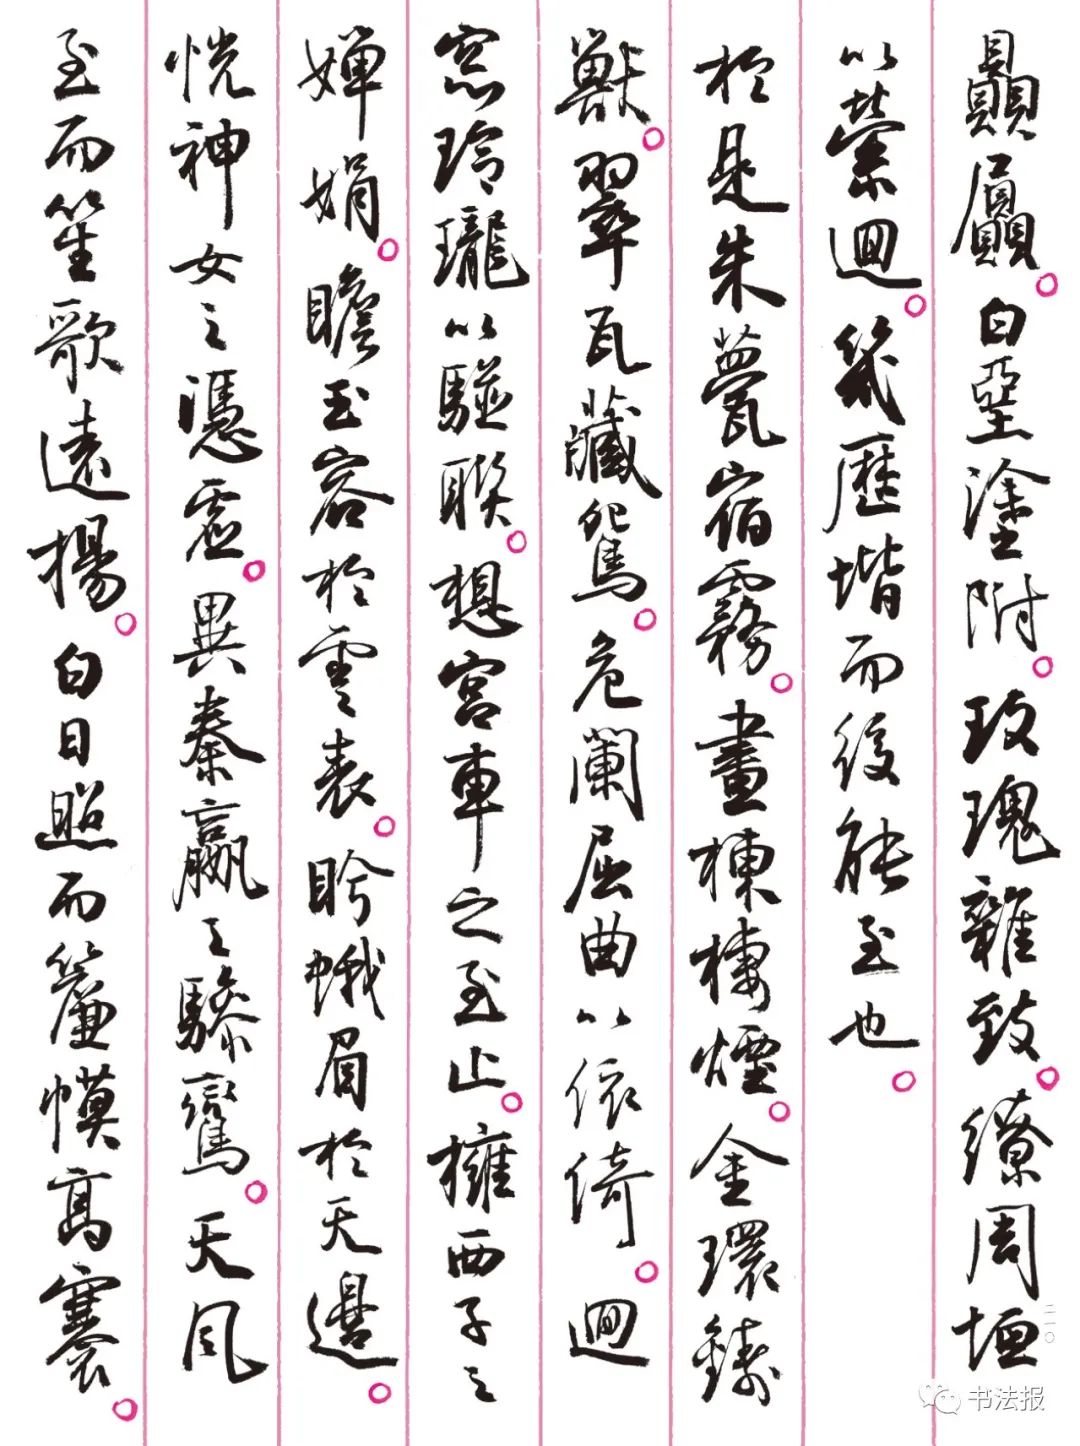 贔屭。白堊塗附。玫瑰雜致。繚周垣
以縈迴。幾歷堦而後能至也。
於是朱甍宿霧。畫棟棲煙。金環鑄
獸。翠瓦藏鴛。危闌屈曲以依倚。迴
窓玲瓏以駢聯。想宮車之至止。擁西子之
嬋娟。瞻玉容於雲表。盻蛾眉於天邊。
恍神女之憑虛。異秦嬴之驂鸞。天風
至而笙歌遠揚。白日照而簾幙高褰。
二一〇
书法报